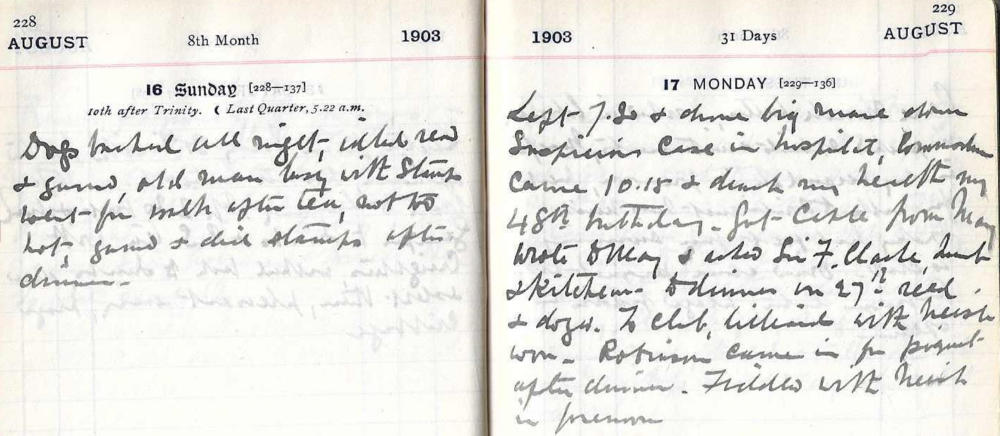 228
AUGUST 8th Month 1903
16 Sunday [228—137]
10th after Trinity. ☾ Last Quarter, 5.22 a.m.
Dogs barked all night, idled read
& gamed, old man busy with Stamps
went for walk after tea, not too
hot, gamed & did stamps after
dinner.
229
1903 31 Days AUGUST
17 MONDAY [229—136]
Left 7.30 & drove big mare down
Suspicious Case in hospital,
came 10.15 & drank my health my
48th birthday. Got Cable from May
wrote to May & asked Sir F. Clarke,
& Kitchener to dinner on 27th recd.
& dogs. To Club, billiards with
won. Robinson came in for piquet
after dinner. Fiddled with
in forenoon